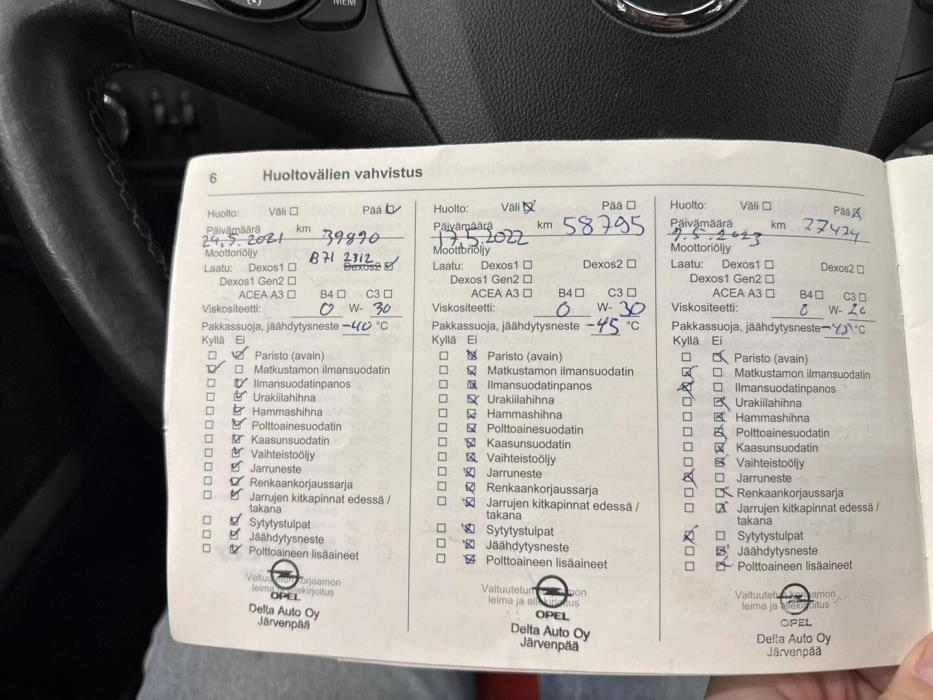 MEM
6 Huoltovälien vahvistus
Huolto: Väli Pää
Päivämäärä km 39890
24.5.2021
Moottoriöljy
B71 2312
Laatu: Dexos1 Dexos2
Dexos1 Gen2
ACEA A3 B4 C3
Viskositeetti: 0 W- 30
Pakkassuoja, jäähdytysneste -40 °C
Kyllä Ei
Paristo (avain)
Matkustamon ilmansuodatin
Ilmansuodatinpanos
Urakiilahihna
Hammashihna
Polttoainesuodatin
Kaasunsuodatin
Vaihteistoöljy
Jarruneste
Renkaankorjaussarja
Jarrujen kitkapinnat edessä /
takana
Sytytystulpat
Jäähdytysneste
Polttoaineen lisäaineet
leima ja allekirjoitus
OPEL
Delta Auto Oy
Järvenpää
Huolto: Väli Pää
Päivämäärä km 58795
17.5.2022
Moottoriöljy
Laatu: Dexos1 Dexos2
Dexos1 Gen2
ACEA A3 B4 C3
Viskositeetti: 0 W- 30
Pakkassuoja, jäähdytysneste -45 °C
Kyllä Ei
Paristo (avain)
Matkustamon ilmansuodatin
Ilmansuodatinpanos
Urakiilahihna
Hammashihna
Polttoainesuodatin
Kaasunsuodatin
Vaihteistoöljy
Jarruneste
Renkaankorjaussarja
Jarrujen kitkapinnat edessä /
takana
Sytytystulpat
Jäähdytysneste
Polttoaineen lisäaineet
leima ja allekirjoitus
OPEL
Delta Auto Oy
Järvenpää
Huolto: Väli Pää
Päivämäärä km
Moottoriöljy
Laatu: Dexos1 Dexos2
Dexos1 Gen2
ACEA A3 B4 C3
Viskositeetti: 0 W- 20
Pakkassuoja, jäähdytysneste °C
Kyllä Ei
Paristo (avain)
Matkustamon ilmansuodatin
Ilmansuodatinpanos
Urakiilahihna
Hammashihna
Polttoainesuodatin
Kaasunsuodatin
Vaihteistoöljy
Jarruneste
Renkaankorjaussarja
Jarrujen kitkapinnat edessä /
takana
Sytytystulpat
Jäähdytysneste
Polttoaineen lisäaineet
leima ja allekirjoitus
OPEL
Delta Auto Oy
Järvenpää